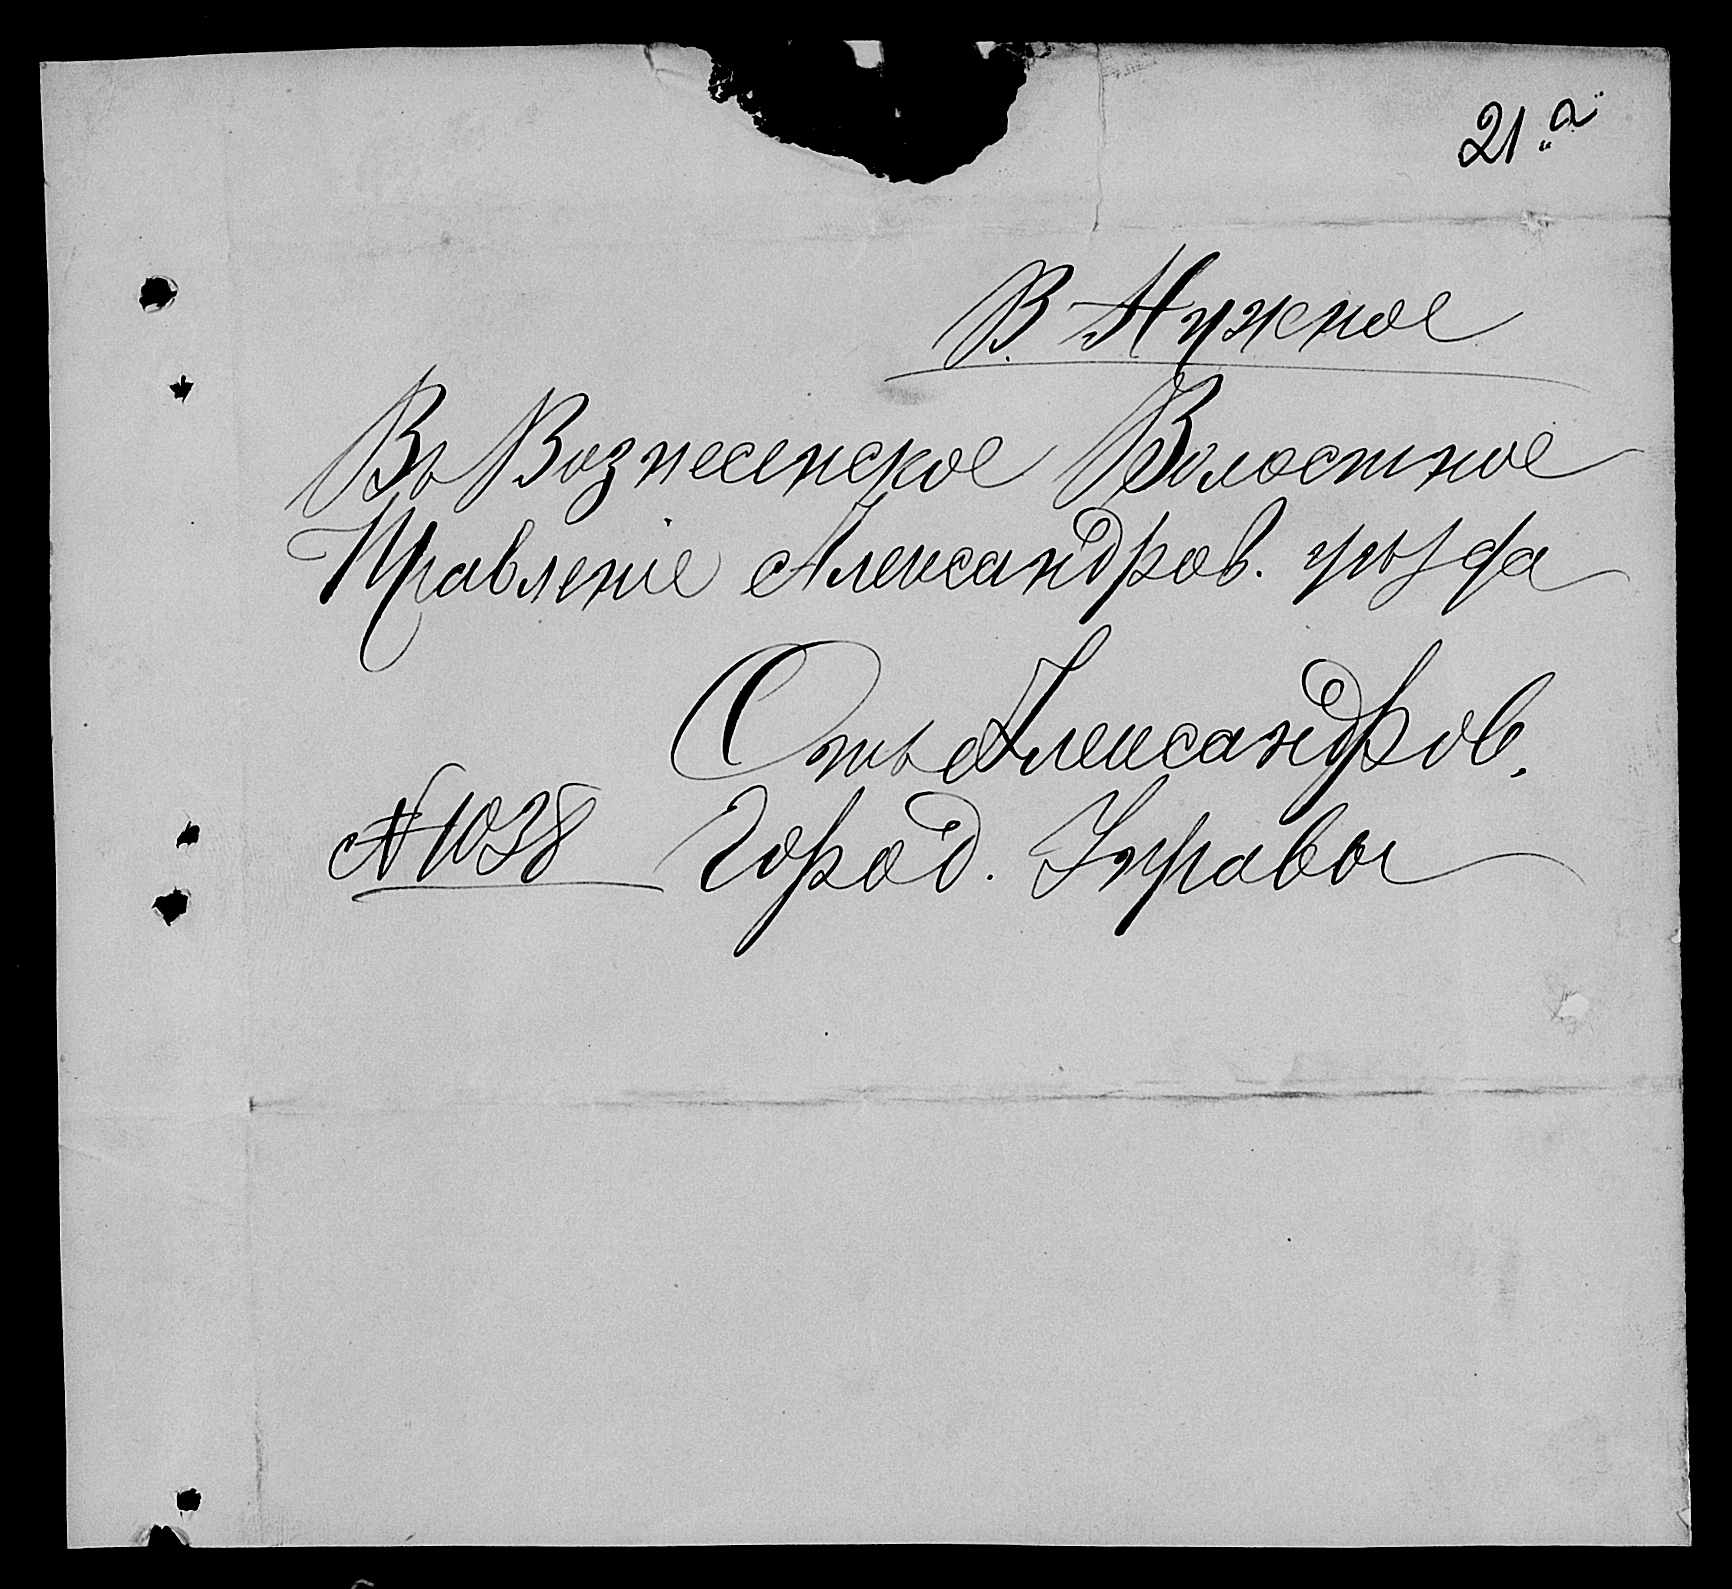 21 "а"
В. Нужное
Въ Вознесенское Волостное
Правленіе Александров. уѣзда
Отъ Александров.
№ 1038 Город. Управы